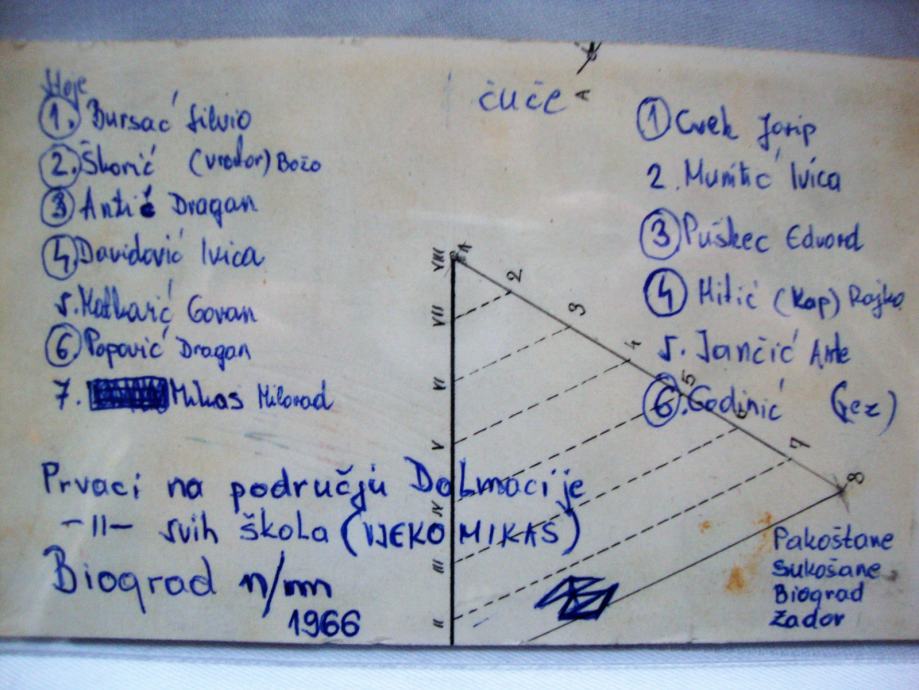 Moje
1. Bursać Silvio
2. Škorić (vrator) Božo
3 Antić Dragan
4 Davidović Ivica
5. Goran
6 Popović Dragan
7. Mikas Milorad
čuče
A
1 Cvek Josip
2. Munitić Ivica
3 Puškec Eduard
4 Mitić (Kap) Rajko
5. Jančić Ante
6. Godinić (Gez)
VIII A
VII 2
VI 3
V 4
IV 5
III 6
II 7
8
Prvaci na području Dalmacije
-II- svih škola (VJEKO MIKAS)
Biograd n/m
1966
Pakoštane
Sukošane
Biograd
Zadar